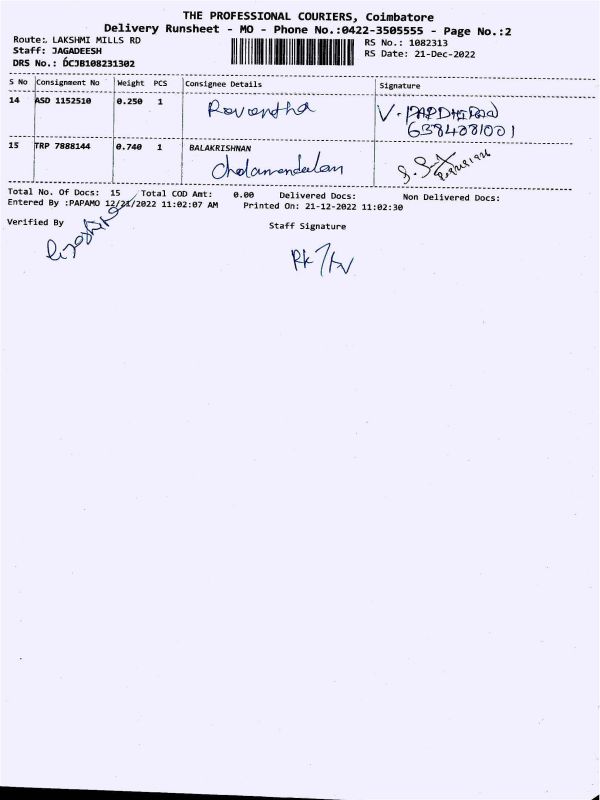 THE PROFESSIONAL COURIERS, Coimbatore
Delivery Runsheet - MO - Phone No.:0422-3505555 - Page No.:2
Route: LAKSHMI MILLS RD
RS No.: 1082313
Staff: JAGADEESH
RS Date: 21-Dec-2022
DRS No.: DCJB108231302
S No Consignment No Weight PCS Consignee Details Signature
14 ASD 1152510 0.250 1 Ravantha V.
6384081001
15 TRP 7888144 0.740 1 BALAKRISHNAN
Cholamandalam
Total No. Of Docs: 15 Total COD Amt: 0.00 Delivered Docs: Non Delivered Docs:
Entered By :PAPAMO 12/21/2022 11:02:07 AM Printed On: 21-12-2022 11:02:30
Verified By
Staff Signature